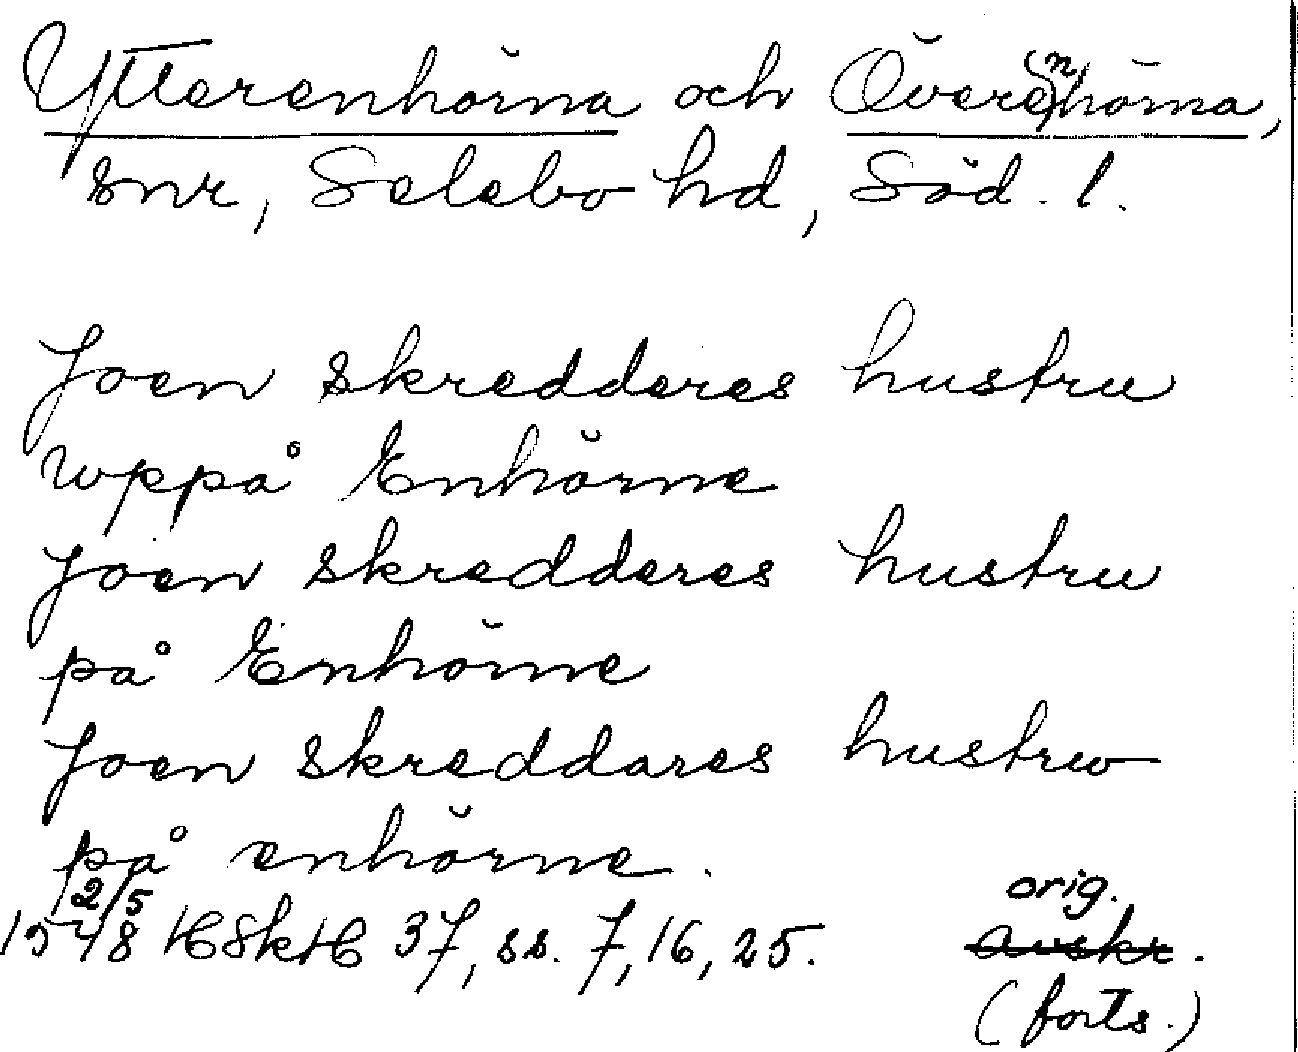 Ytterenhörna och Överenhörna,
snr, Selebo hd, Söd. l.
Joen skredderes hustru
wppå Enhörne
Joen skredderes hustru
på Enhörne
Joen skreddares hustrw
på enhörne.
2/5 orig.
1548 HSkH 37, ss. 7, 16, 25. avskr.
(forts.)